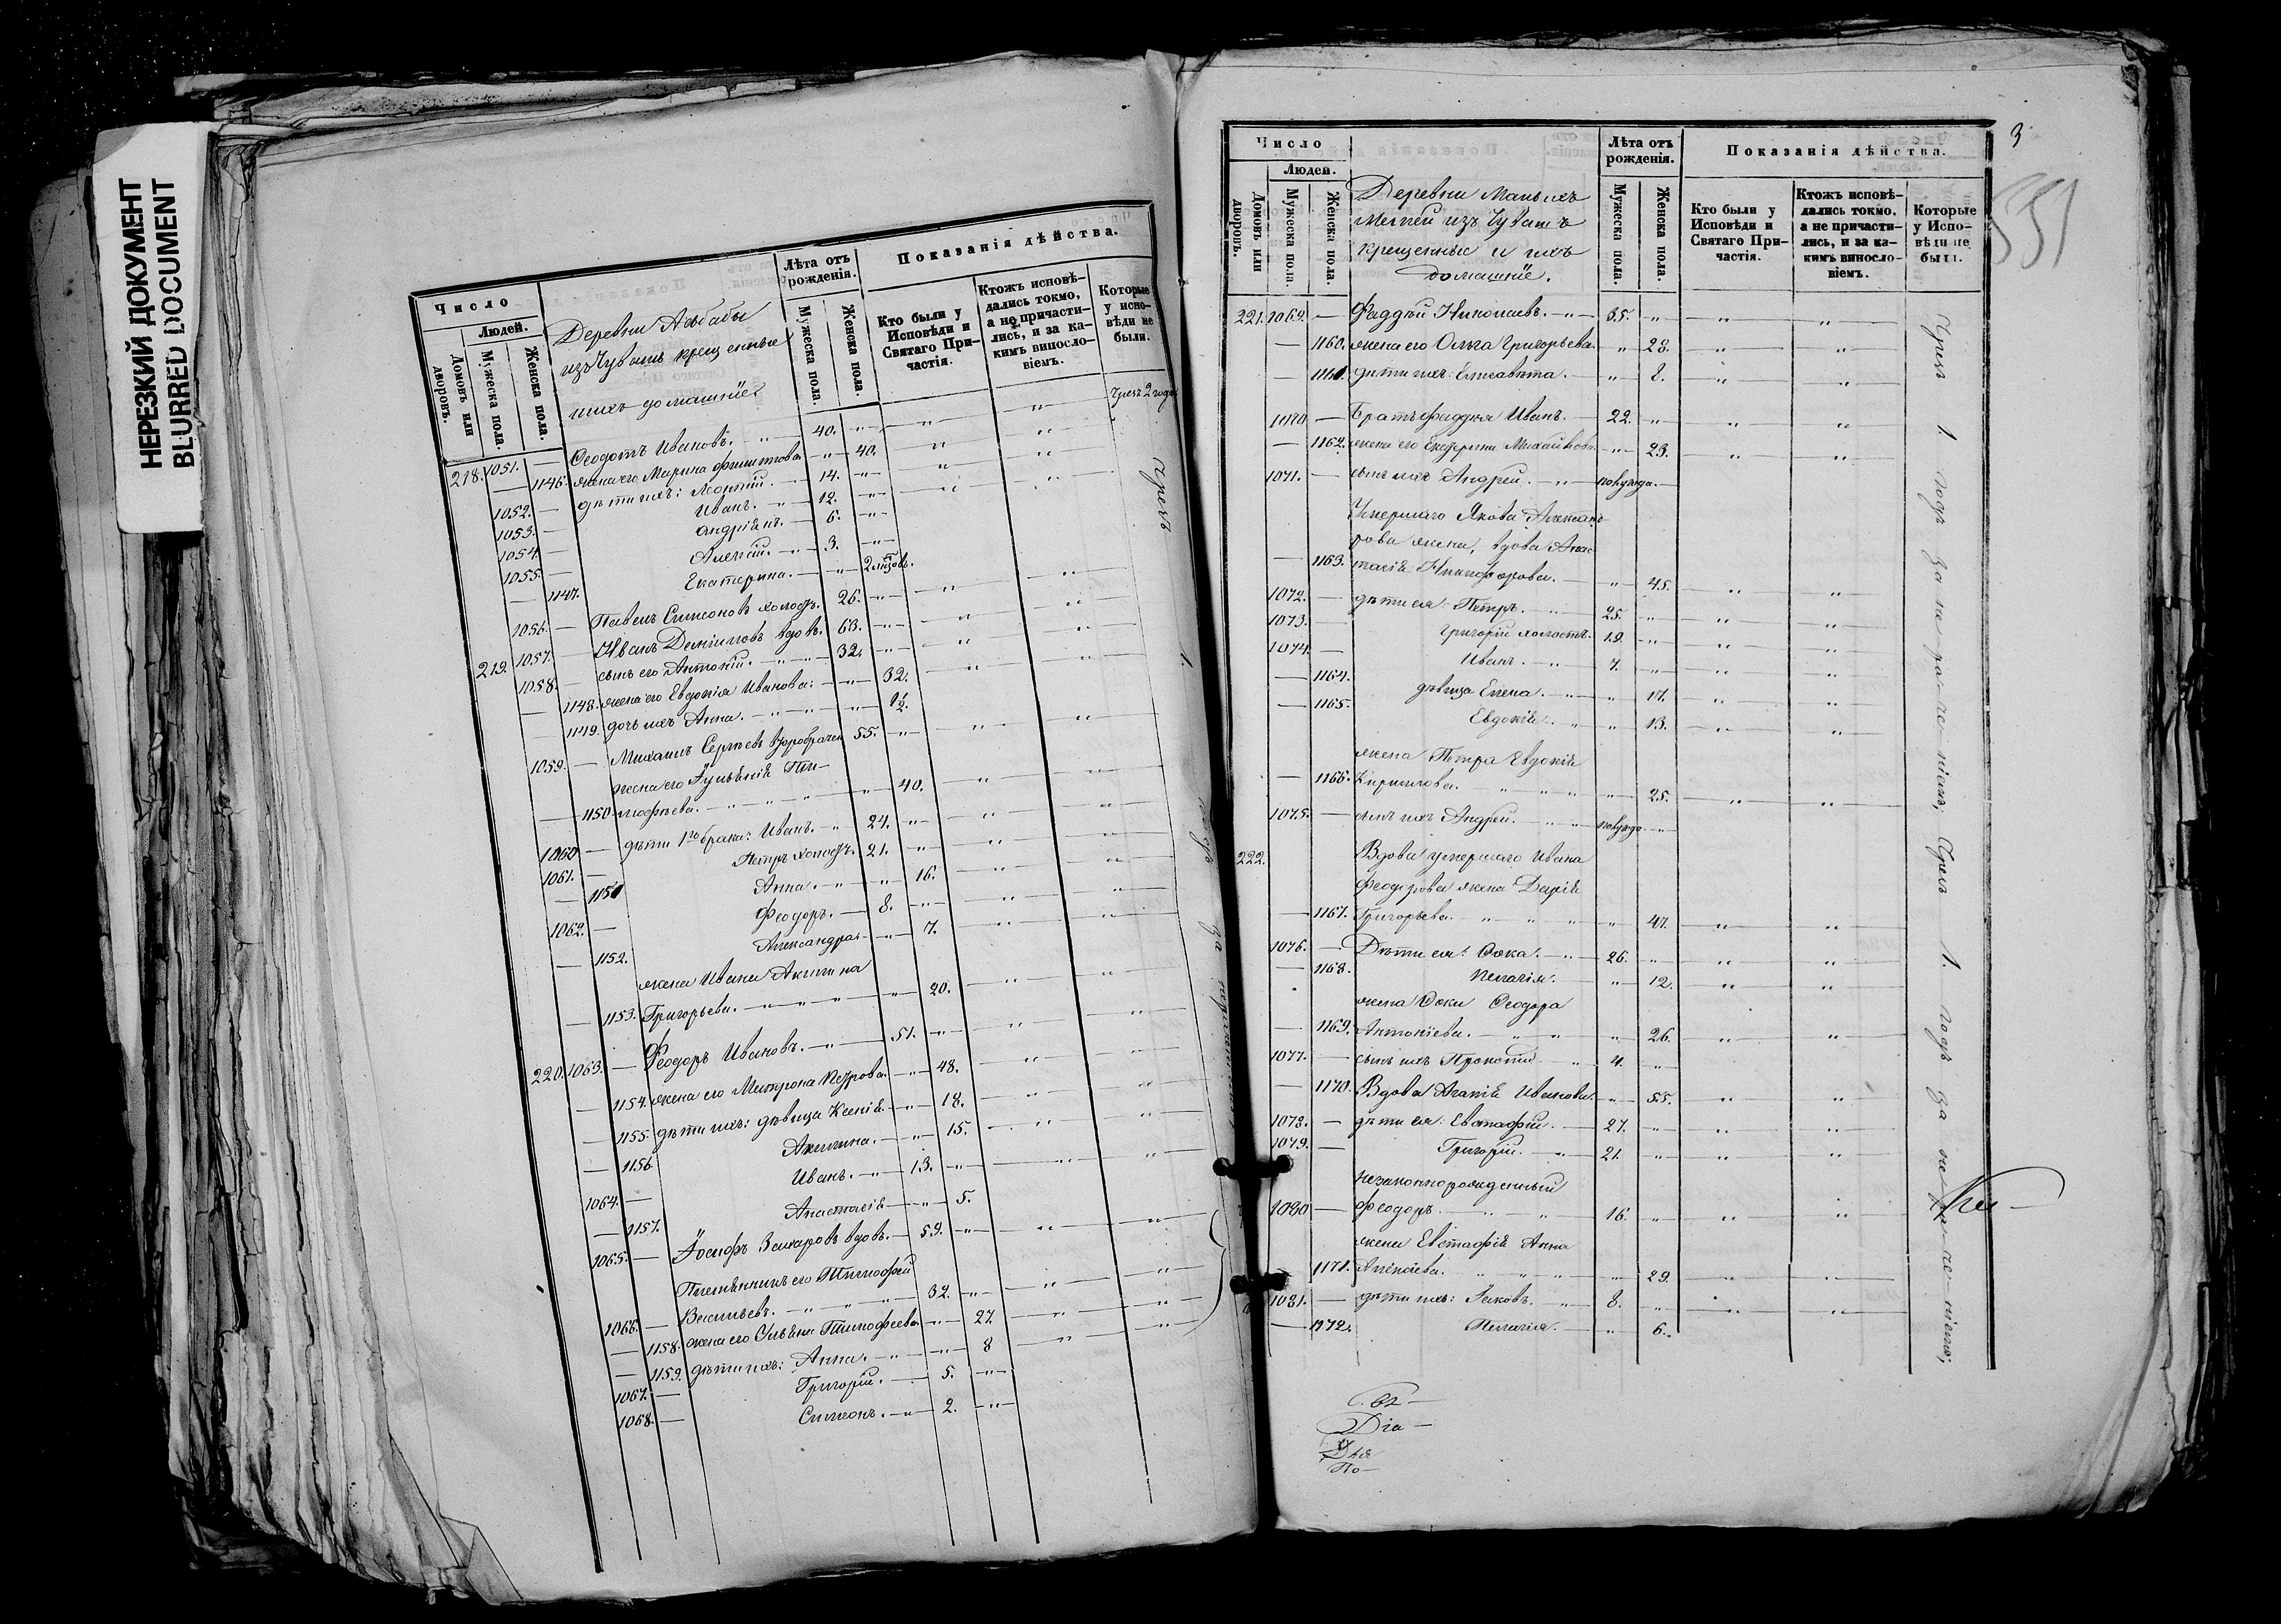 НЕРЕЗКИЙ ДОКУМЕНТ
BLURRED DOCUMENT
Число
Людей.
Домовъ или дворовъ.
Мужеска пола.
Женска пола.
Деревни
изъ Чувашъ крещенные
и ихъ домашніе
Лѣта отъ рожденія.
Мужеска пола.
Женска пола.
Показанія дѣйства.
Кто были у Исповѣди и Святаго Причастія.
Ктожъ исповѣдались токмо, а не причастились, и за какимъ винословіемъ.
Которые у исповѣди не были.
218. 1051. — Ѳеодотъ Ивановъ. 40.
— 1146. жена его Марина Филиппова 40.
1052. — дѣти ихъ: Леонтій. 14.
1053. — Иванъ. 12.
1054. — Андріанъ. 6.
1055. — Алексій. 3.
— 1147. Екатерина. —
1056. — Павелъ Симеоновъ холостъ. 26.
219. 1057. — Иванъ вдовъ. 63.
1058. — сынъ его Антоній. 32.
— 1148. жена его Евдокія Иванова. 32.
— 1149. дочь ихъ Анна. 1/2.
1059. — Михаилъ Сергѣевъ второбрачн 55.
жена его Іуліанія Ти-
— 1150. мофѣева. 40.
1060 — дѣти 1го брака: Иванъ. 24.
1061. — Петръ холостъ. 21.
— 1151 Анна. 16.
1062. — Феодоръ. 8.
— 1152. Александра. 7.
жена Ивана Акилина
— 1153. Григорьева. 20.
220. 1063. — Феодоръ Ивановъ. 51.
— 1154. жена его Матрона Петрова 48.
— 1155. дѣти ихъ: дѣвица Ксенія 18.
— 1156 Акилина. 15.
1064. — Иванъ. 13.
— 1157. Анастасія 5.
1065. — Іосифъ Захаровъ вдовъ. 59.
Племянникъ его Тимофей
1066. — Васильевъ. 32.
— 1158. жена его Тимофеева 27.
— 1159. дѣти ихъ: Анна. 8
1067. — Григорій. 5.
1068. — Симеонъ. 2.
Число
Людей.
Домовъ или дворовъ.
Мужеска пола.
Женска пола.
Деревни
изъ Чувашъ
крещенные и ихъ
домашніе.
Лѣта отъ рожденія.
Мужеска пола.
Женска пола.
Показанія дѣйства.
Кто были у Исповѣди и Святаго Причастія.
Ктожъ исповѣдались токмо, а не причастились, и за какимъ винословіемъ.
Которые у Исповѣди не были.
3
551
221. 1069. — Фаддѣй Николаевъ. 35.
— 1160. жена его Ольга Григорьева. 28.
— 1161. дѣти ихъ: Елисавета. 8.
1070 — Братъ Фаддея Иванъ. 22.
— 1162. жена его Екатерина Михайлова 23.
1071. — сынъ ихъ Андрей. полугода.
Умершаго Якова Александ-
рова жена, вдова Анас-
— 1163. тасія Никифорова. 45.
1072. — дѣти ея: Петръ. 25.
1073. Григорій холостъ. 19.
1074. — Иванъ. 7.
— 1164. дѣвица Елена. 17.
— 1165. Евдокія. 13.
жена Петра Евдокія
— 1166. Кириллова. 25.
1075. — сынъ ихъ Андрей. полугода
222. Вдова умершаго Ивана
Феодорова жена Дарія
— 1167. Григорьева. 47.
1076. — Дѣти ея: Ѳока. 26.
— 1168. Пелагія. 12.
жена Ѳоки Ѳеодора
— 1169. Антоніева. 26.
1077. — сынъ ихъ Прокопій 4.
— 1170. Вдова Агапія Иванова. 55.
1078. — дѣти ея: Евстафій. 27.
1079. — Григорій. 21.
Незаконнорожденный
1080 — Феодоръ. 16.
жена Евстафія Анна
1171. Алексіева. 29.
1081. — дѣти ихъ: Іаковъ. 8.
— 1172. Пелагія. 6.